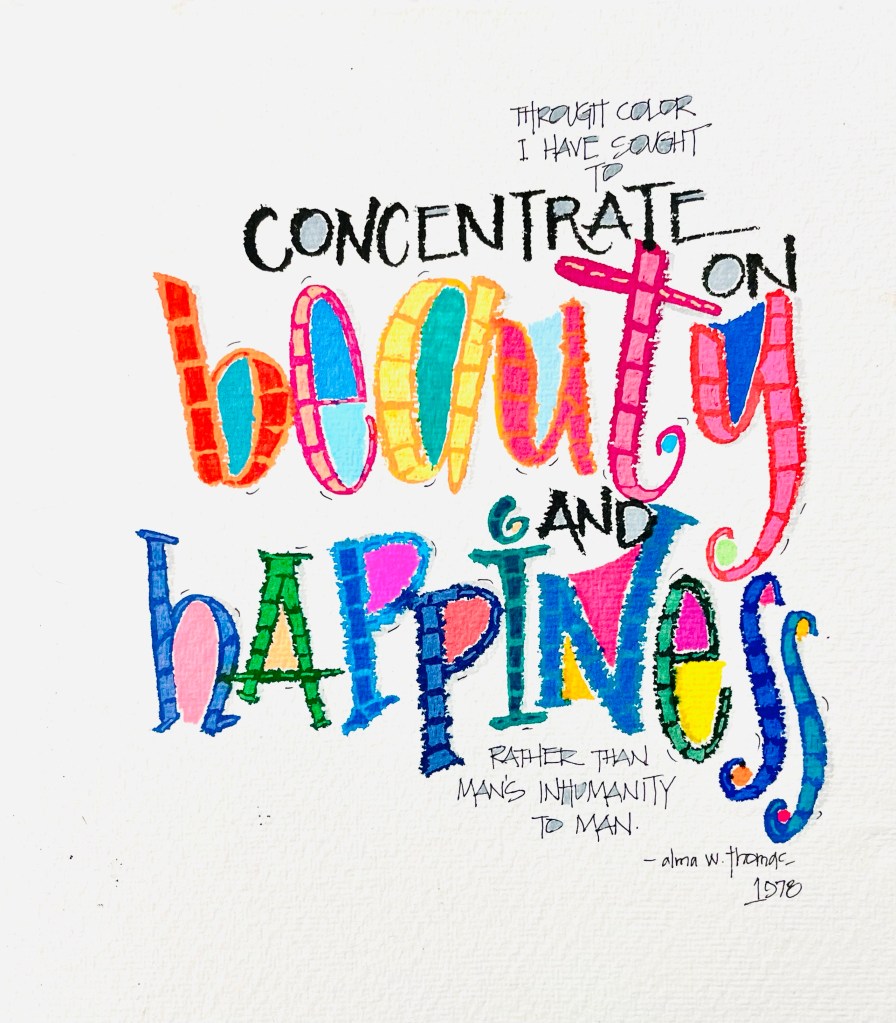 THROUGH COLOR
I HAVE SOUGHT
TO
CONCENTRATE
ON
beauty
AND
hAPPiNess
RATHER THAN
MAN'S INHUMANITY
TO MAN.
- alma w. thomas -
1978